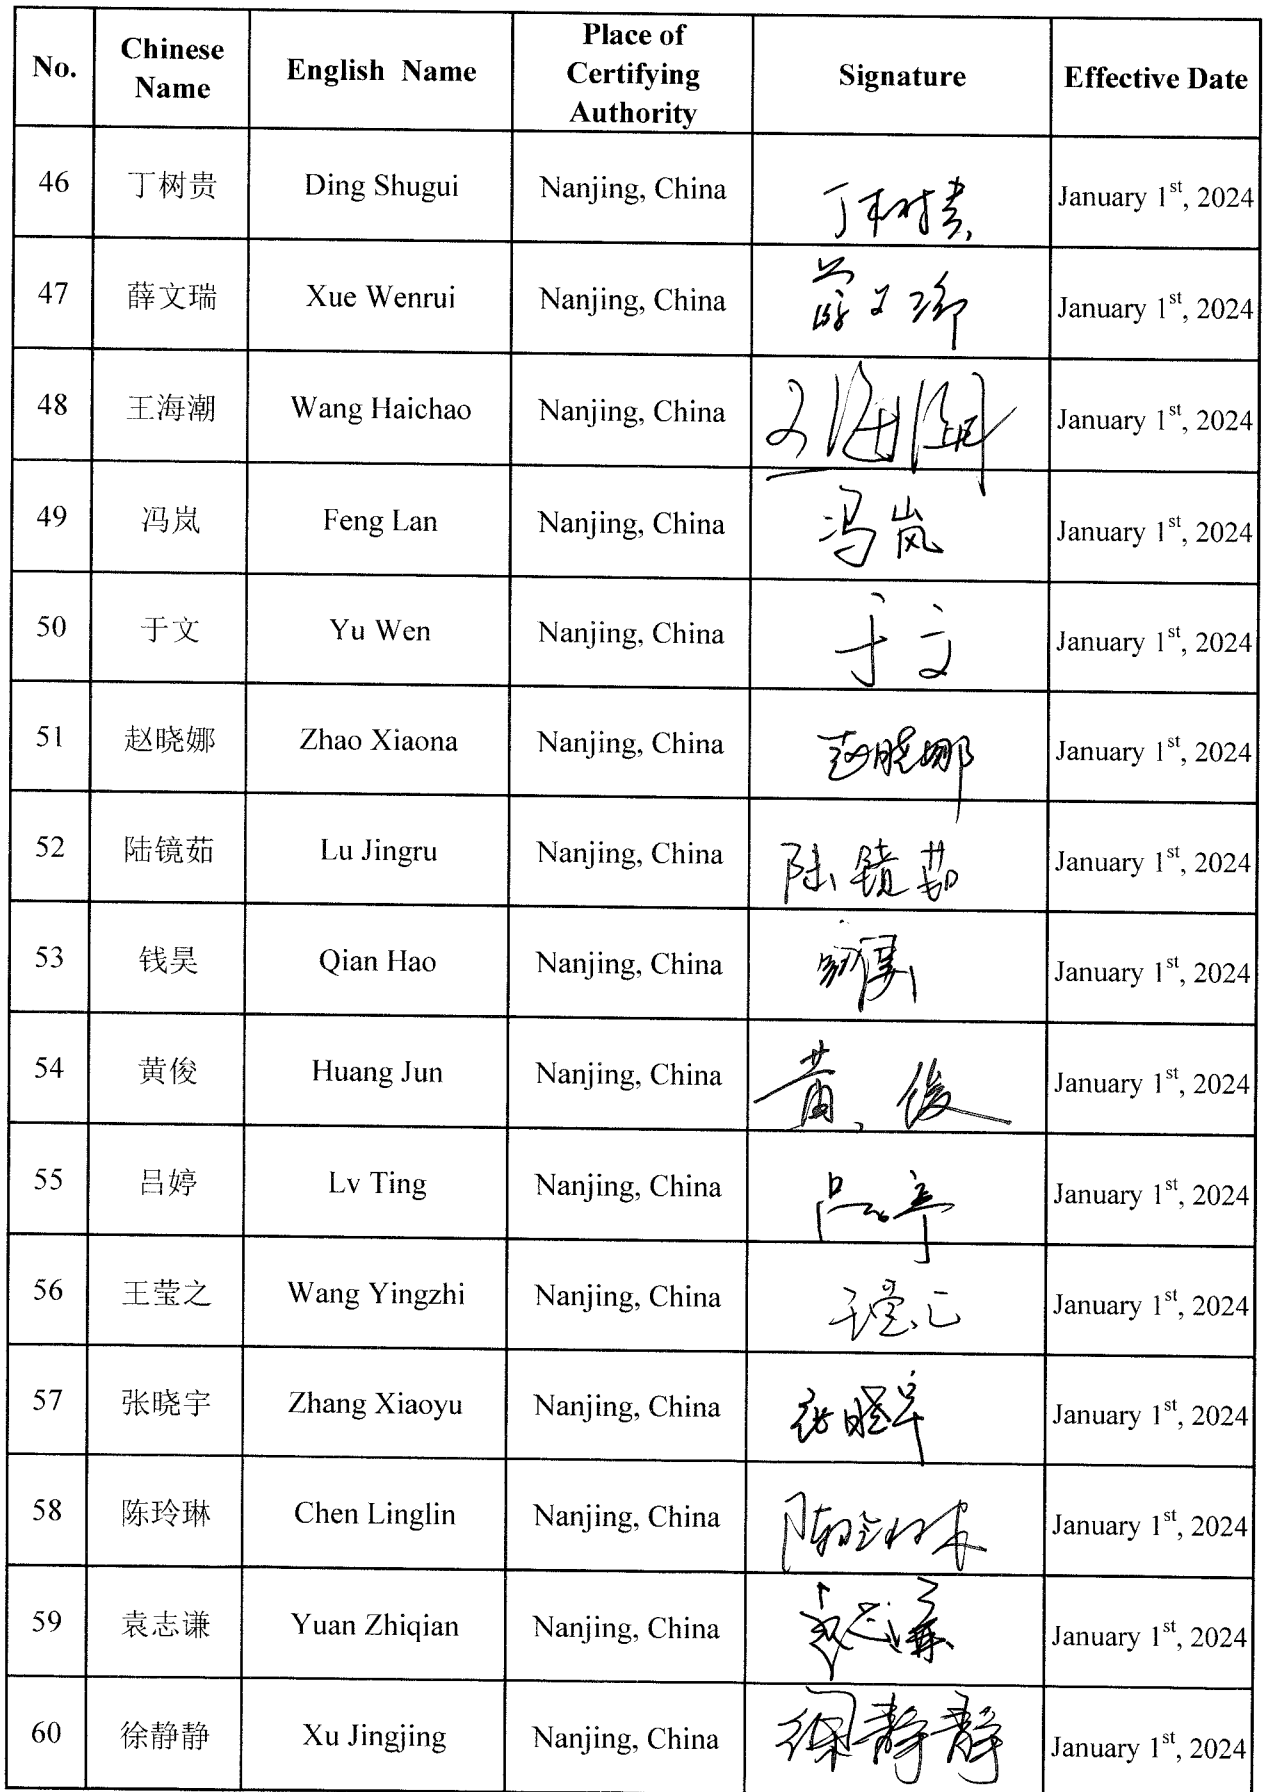 No. Chinese Name English Name Place of Certifying Authority Signature Effective Date
46 丁树贵 Ding Shugui Nanjing, China 丁树贵 January 1st, 2024
47 薛文瑞 Xue Wenrui Nanjing, China 薛文瑞 January 1st, 2024
48 王海潮 Wang Haichao Nanjing, China 王海潮 January 1st, 2024
49 冯岚 Feng Lan Nanjing, China 冯岚 January 1st, 2024
50 于文 Yu Wen Nanjing, China 于文 January 1st, 2024
51 赵晓娜 Zhao Xiaona Nanjing, China 赵晓娜 January 1st, 2024
52 陆镜茹 Lu Jingru Nanjing, China 陆镜茹 January 1st, 2024
53 钱昊 Qian Hao Nanjing, China January 1st, 2024
54 黄俊 Huang Jun Nanjing, China 黄俊 January 1st, 2024
55 吕婷 Lv Ting Nanjing, China 吕婷 January 1st, 2024
56 王莹之 Wang Yingzhi Nanjing, China 王莹之 January 1st, 2024
57 张晓宇 Zhang Xiaoyu Nanjing, China 张晓宇 January 1st, 2024
58 陈玲琳 Chen Linglin Nanjing, China 陈玲琳 January 1st, 2024
59 袁志谦 Yuan Zhiqian Nanjing, China 袁志谦 January 1st, 2024
60 徐静静 Xu Jingjing Nanjing, China 徐静静 January 1st, 2024